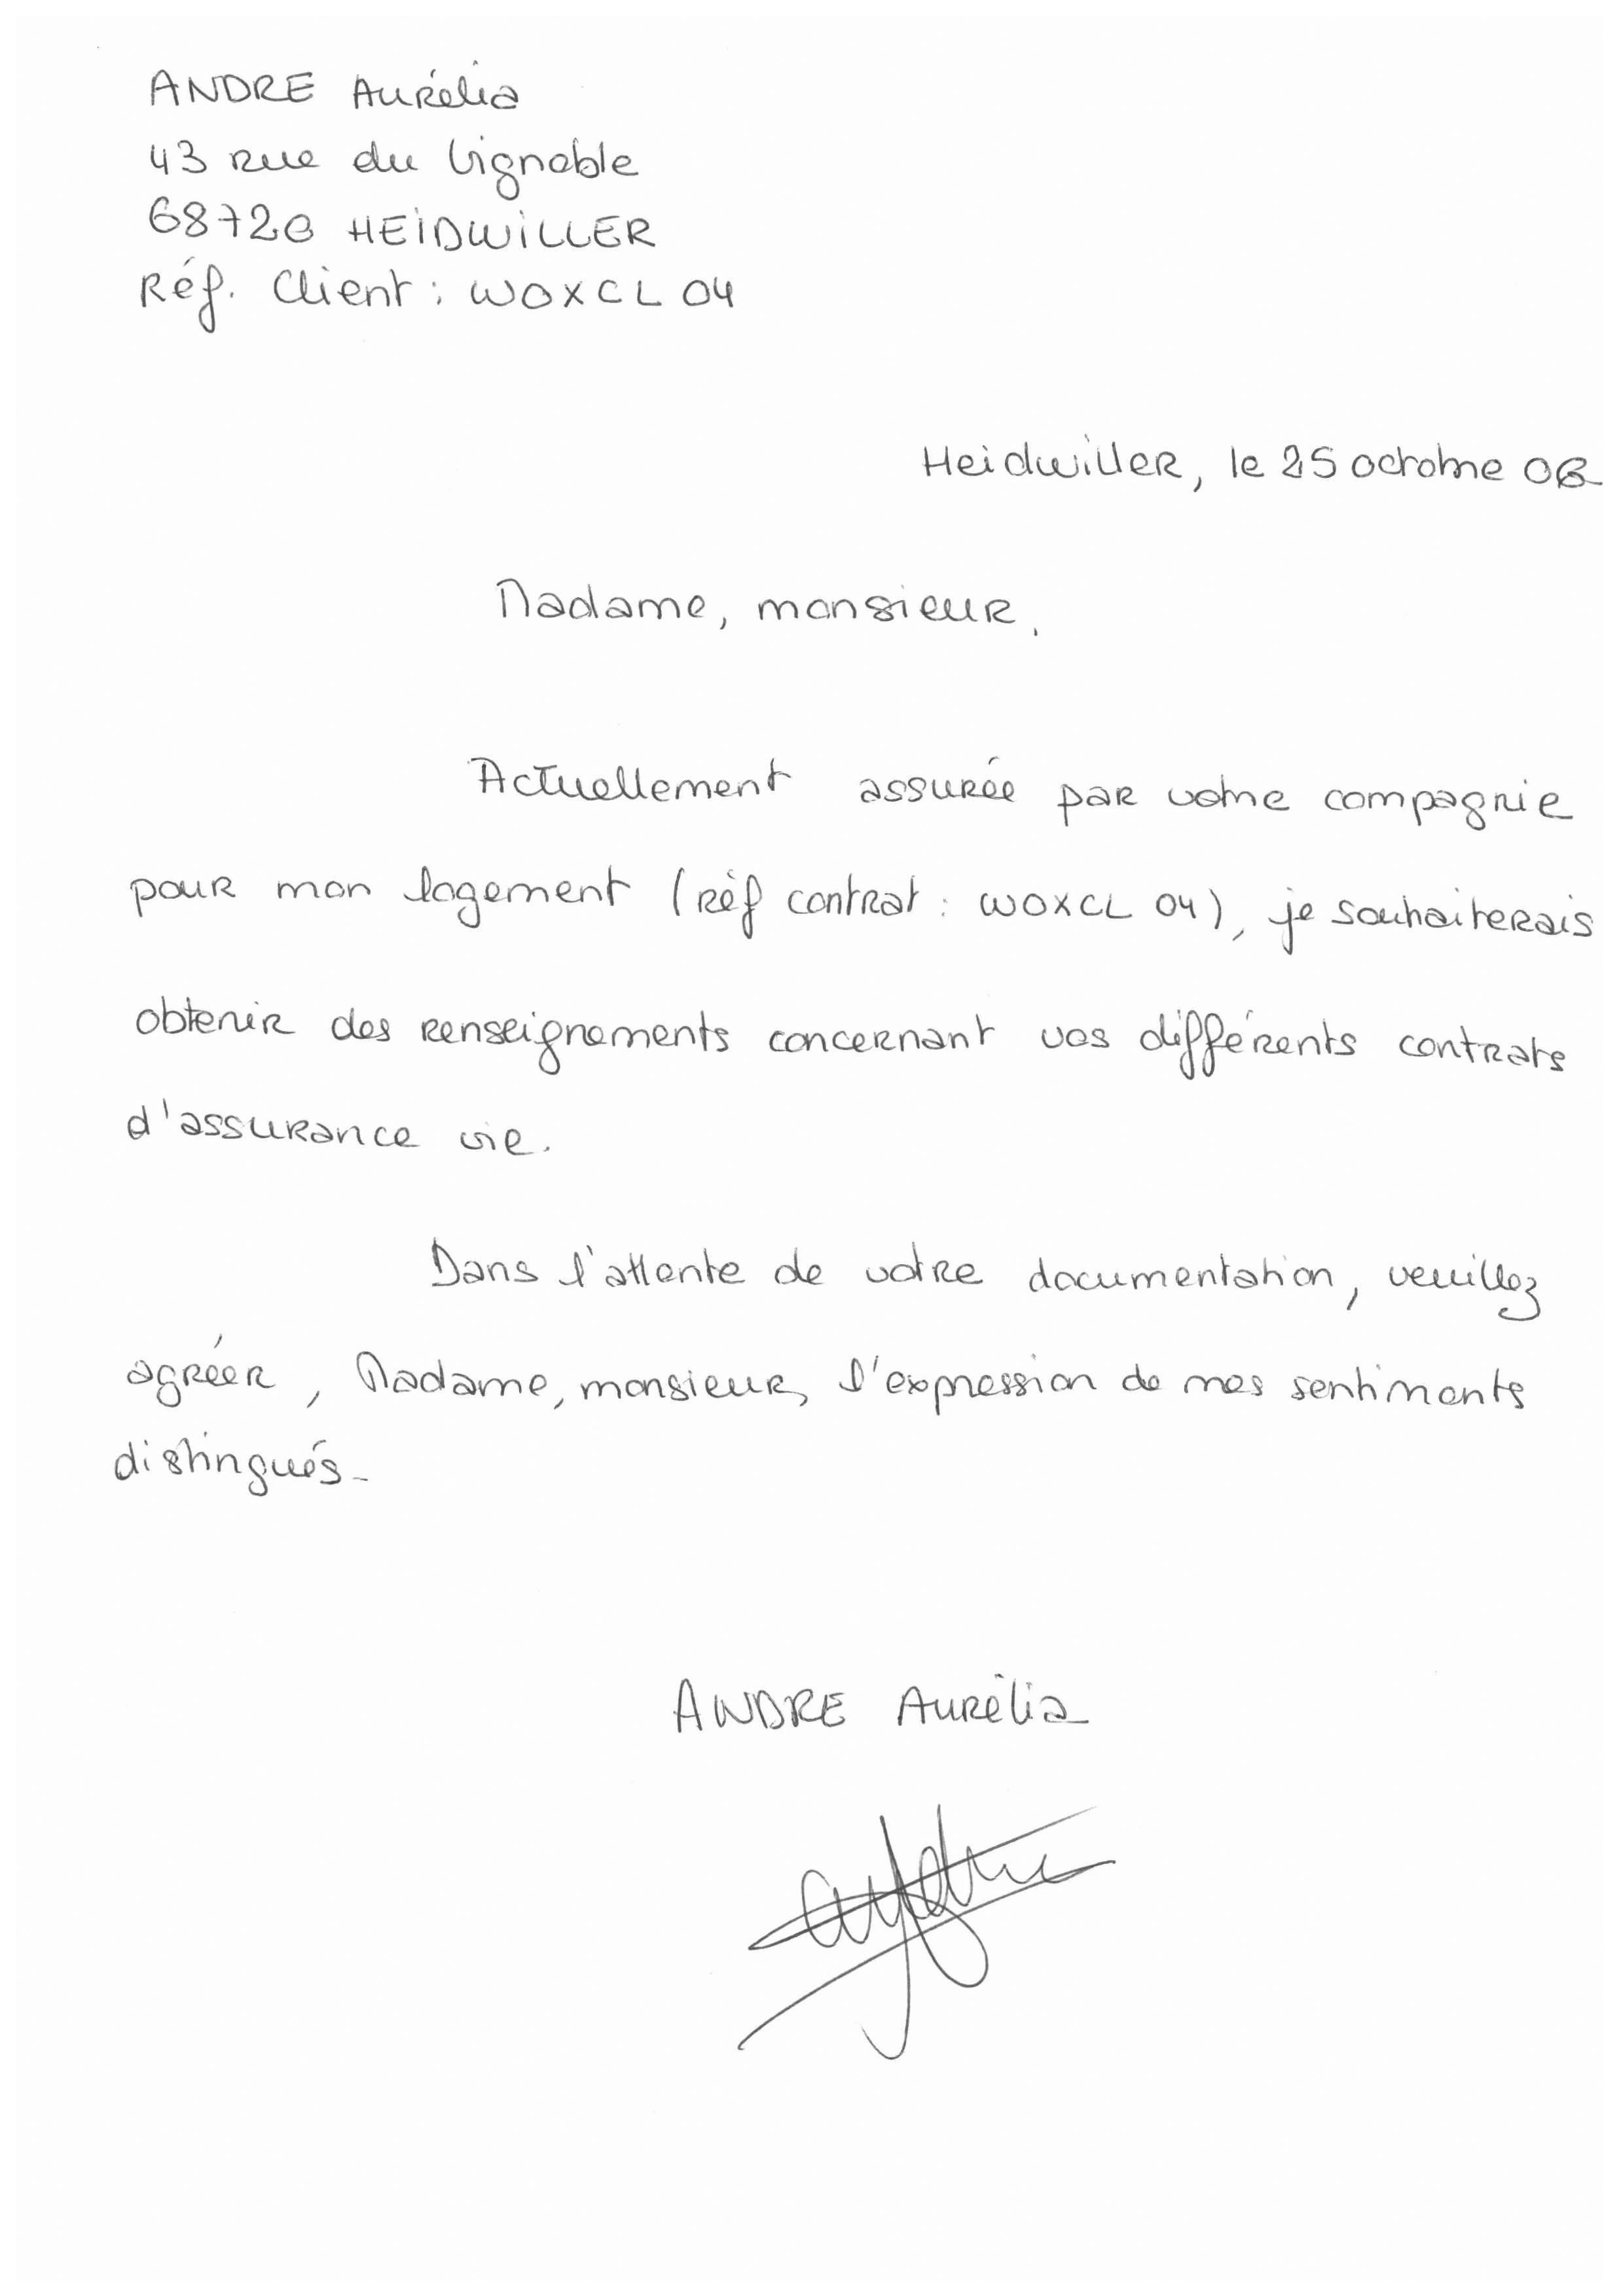 ANDRE Aurélia
43 rue du Vignoble
68720 HEIDWILLER
Réf. Client : WOXCL 04
Heidwiller, le 25 octobre 06
Madame, monsieur,
Actuellement assurée par votre compagnie
pour mon logement (réf contrat : WOXCL 04), je souhaiterais
obtenir des renseignements concernant vos différents contrats
d'assurance vie.
Dans l'attente de votre documentation, veuillez
agréer, Madame, monsieur, l'expression de mes sentiments
distingués.
ANDRE Aurélia